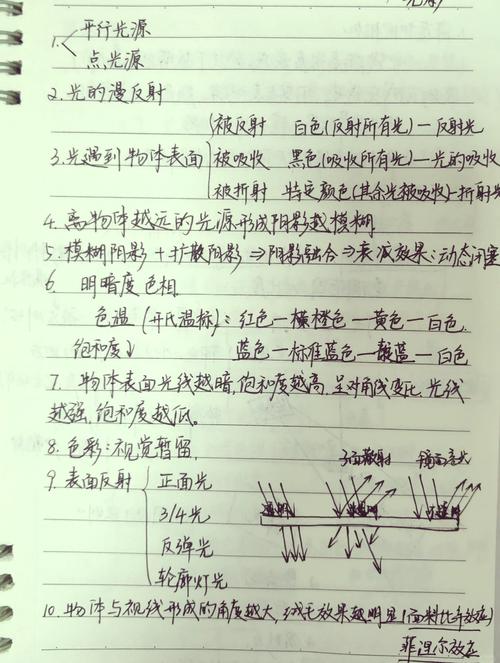 1. 平行光源
点光源
2. 光的漫反射
被反射 白色(反射所有光)—反射光
3. 光遇到物体表面 被吸收 黑色(吸收所有光)—光的吸收
被折射 特定颜色(其余光被吸收)—折射光
4. 离物体越远的光源形成阴影越模糊
5. 模糊阴影 + 扩散阴影 ⇒ 阴影融合 ⇒ 衰减效果:动态闭塞
6 明暗度色相
色温(开氏温标):红色—橘橙色—黄色—白色.
饱和度↓ 蓝色—标准蓝色—靛蓝—白色
7. 物体表面光线越暗,饱和度越高,呈对角线变化,光线
越强,饱和度越低。
8. 色彩:视觉暂留.
散射 镜面高光
9. 表面反射 正面光
透明 半透明 不透明
3/4光
反弹光
轮廓灯光
10. 物体与视线形成的角度越大,绒毛效果越明显
菲涅尔放在